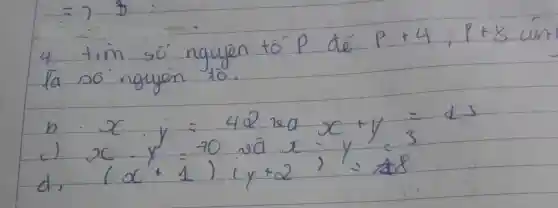 =>
4 tìm số nguyên tố P để P + 4, P + 8 cũn
là số nguyên tố.
b. x . y = 42 và x + y = 13
c) x . y = 70 và x - y = 3
d, (x + 1) (y + 2) = 18